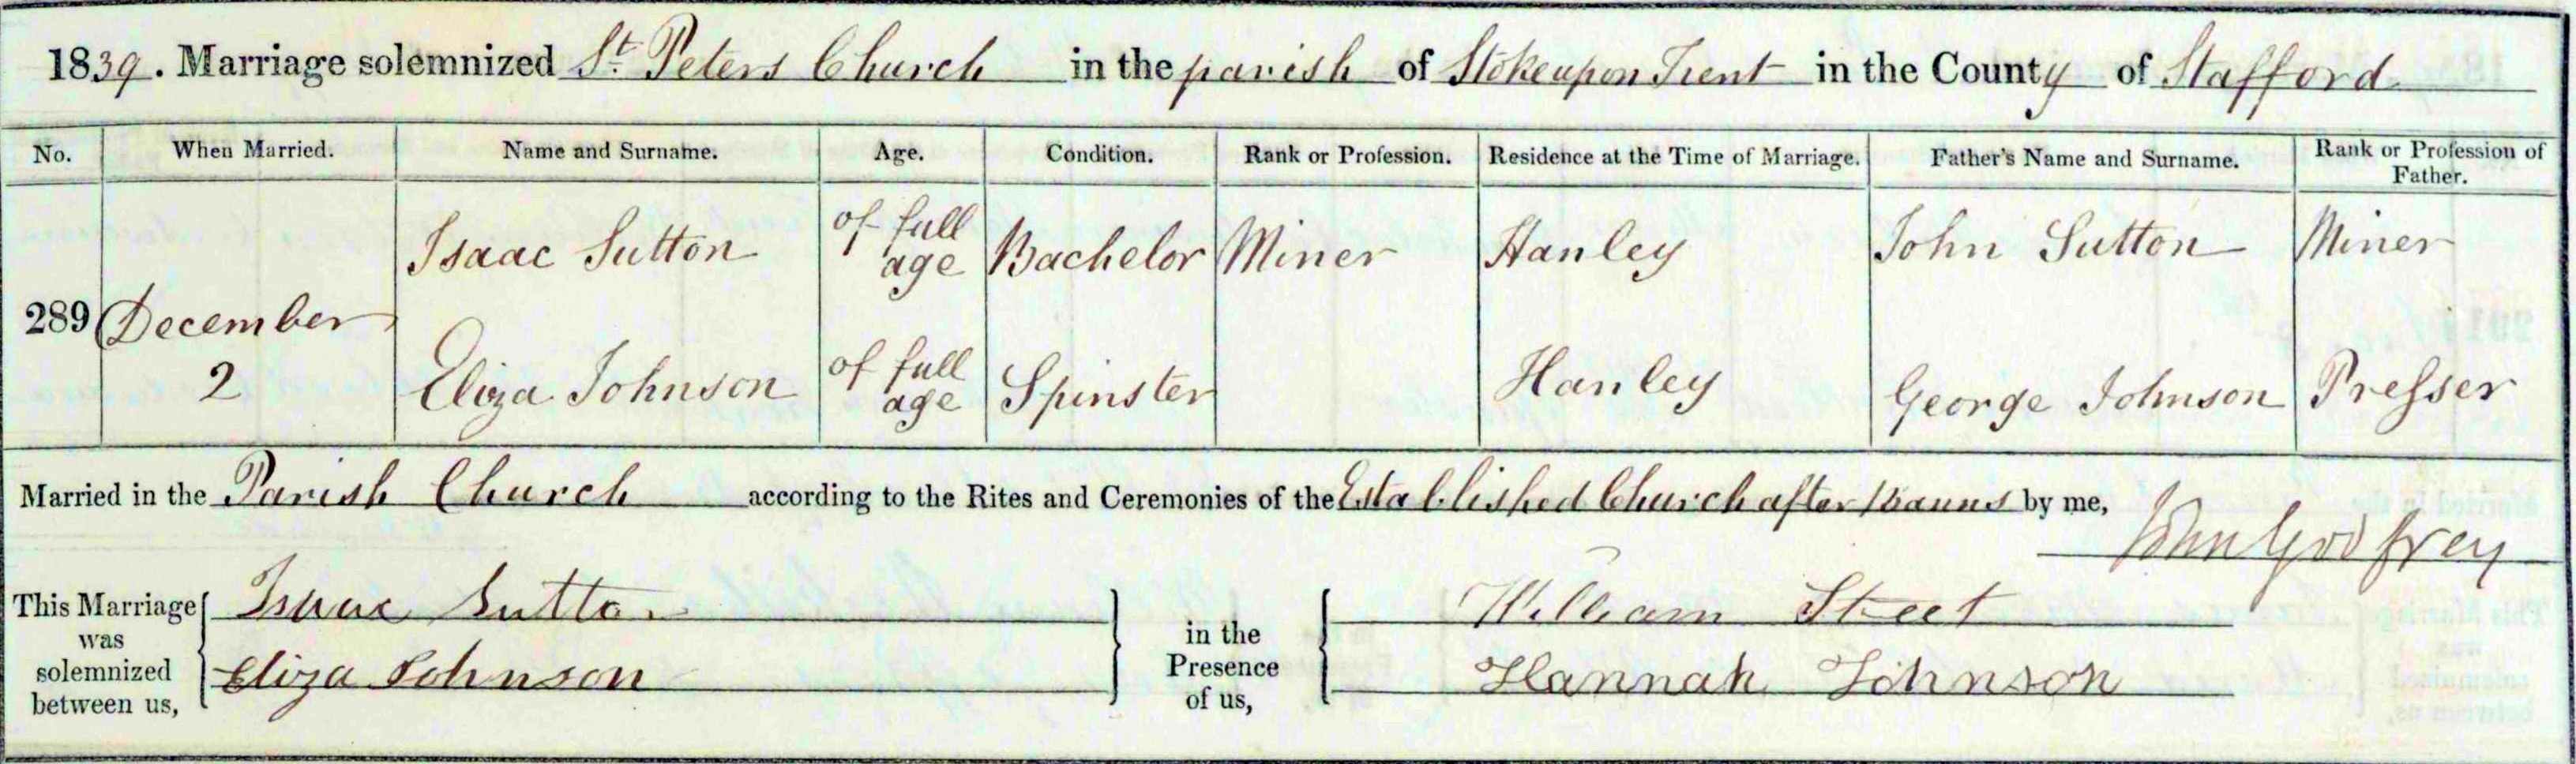 1839. Marriage solemnized St. Peters Church in the parish of Stoke upon Trent in the County of Stafford
No. When Married. Name and Surname. Age. Condition. Rank or Profession. Residence at the Time of Marriage. Father's Name and Surname. Rank or Profession of Father.
Isaac Sutton of full age Bachelor Miner Hanley John Sutton Miner
289 December 2
Eliza Johnson of full age Spinster Hanley George Johnson Presser
Married in the Parish Church according to the Rites and Ceremonies of the Established Church after Banns by me,
John Godfrey
This Marriage was solemnized between us, Isaac Sutton
Eliza Johnson
in the Presence of us, William Street
Hannah Johnson